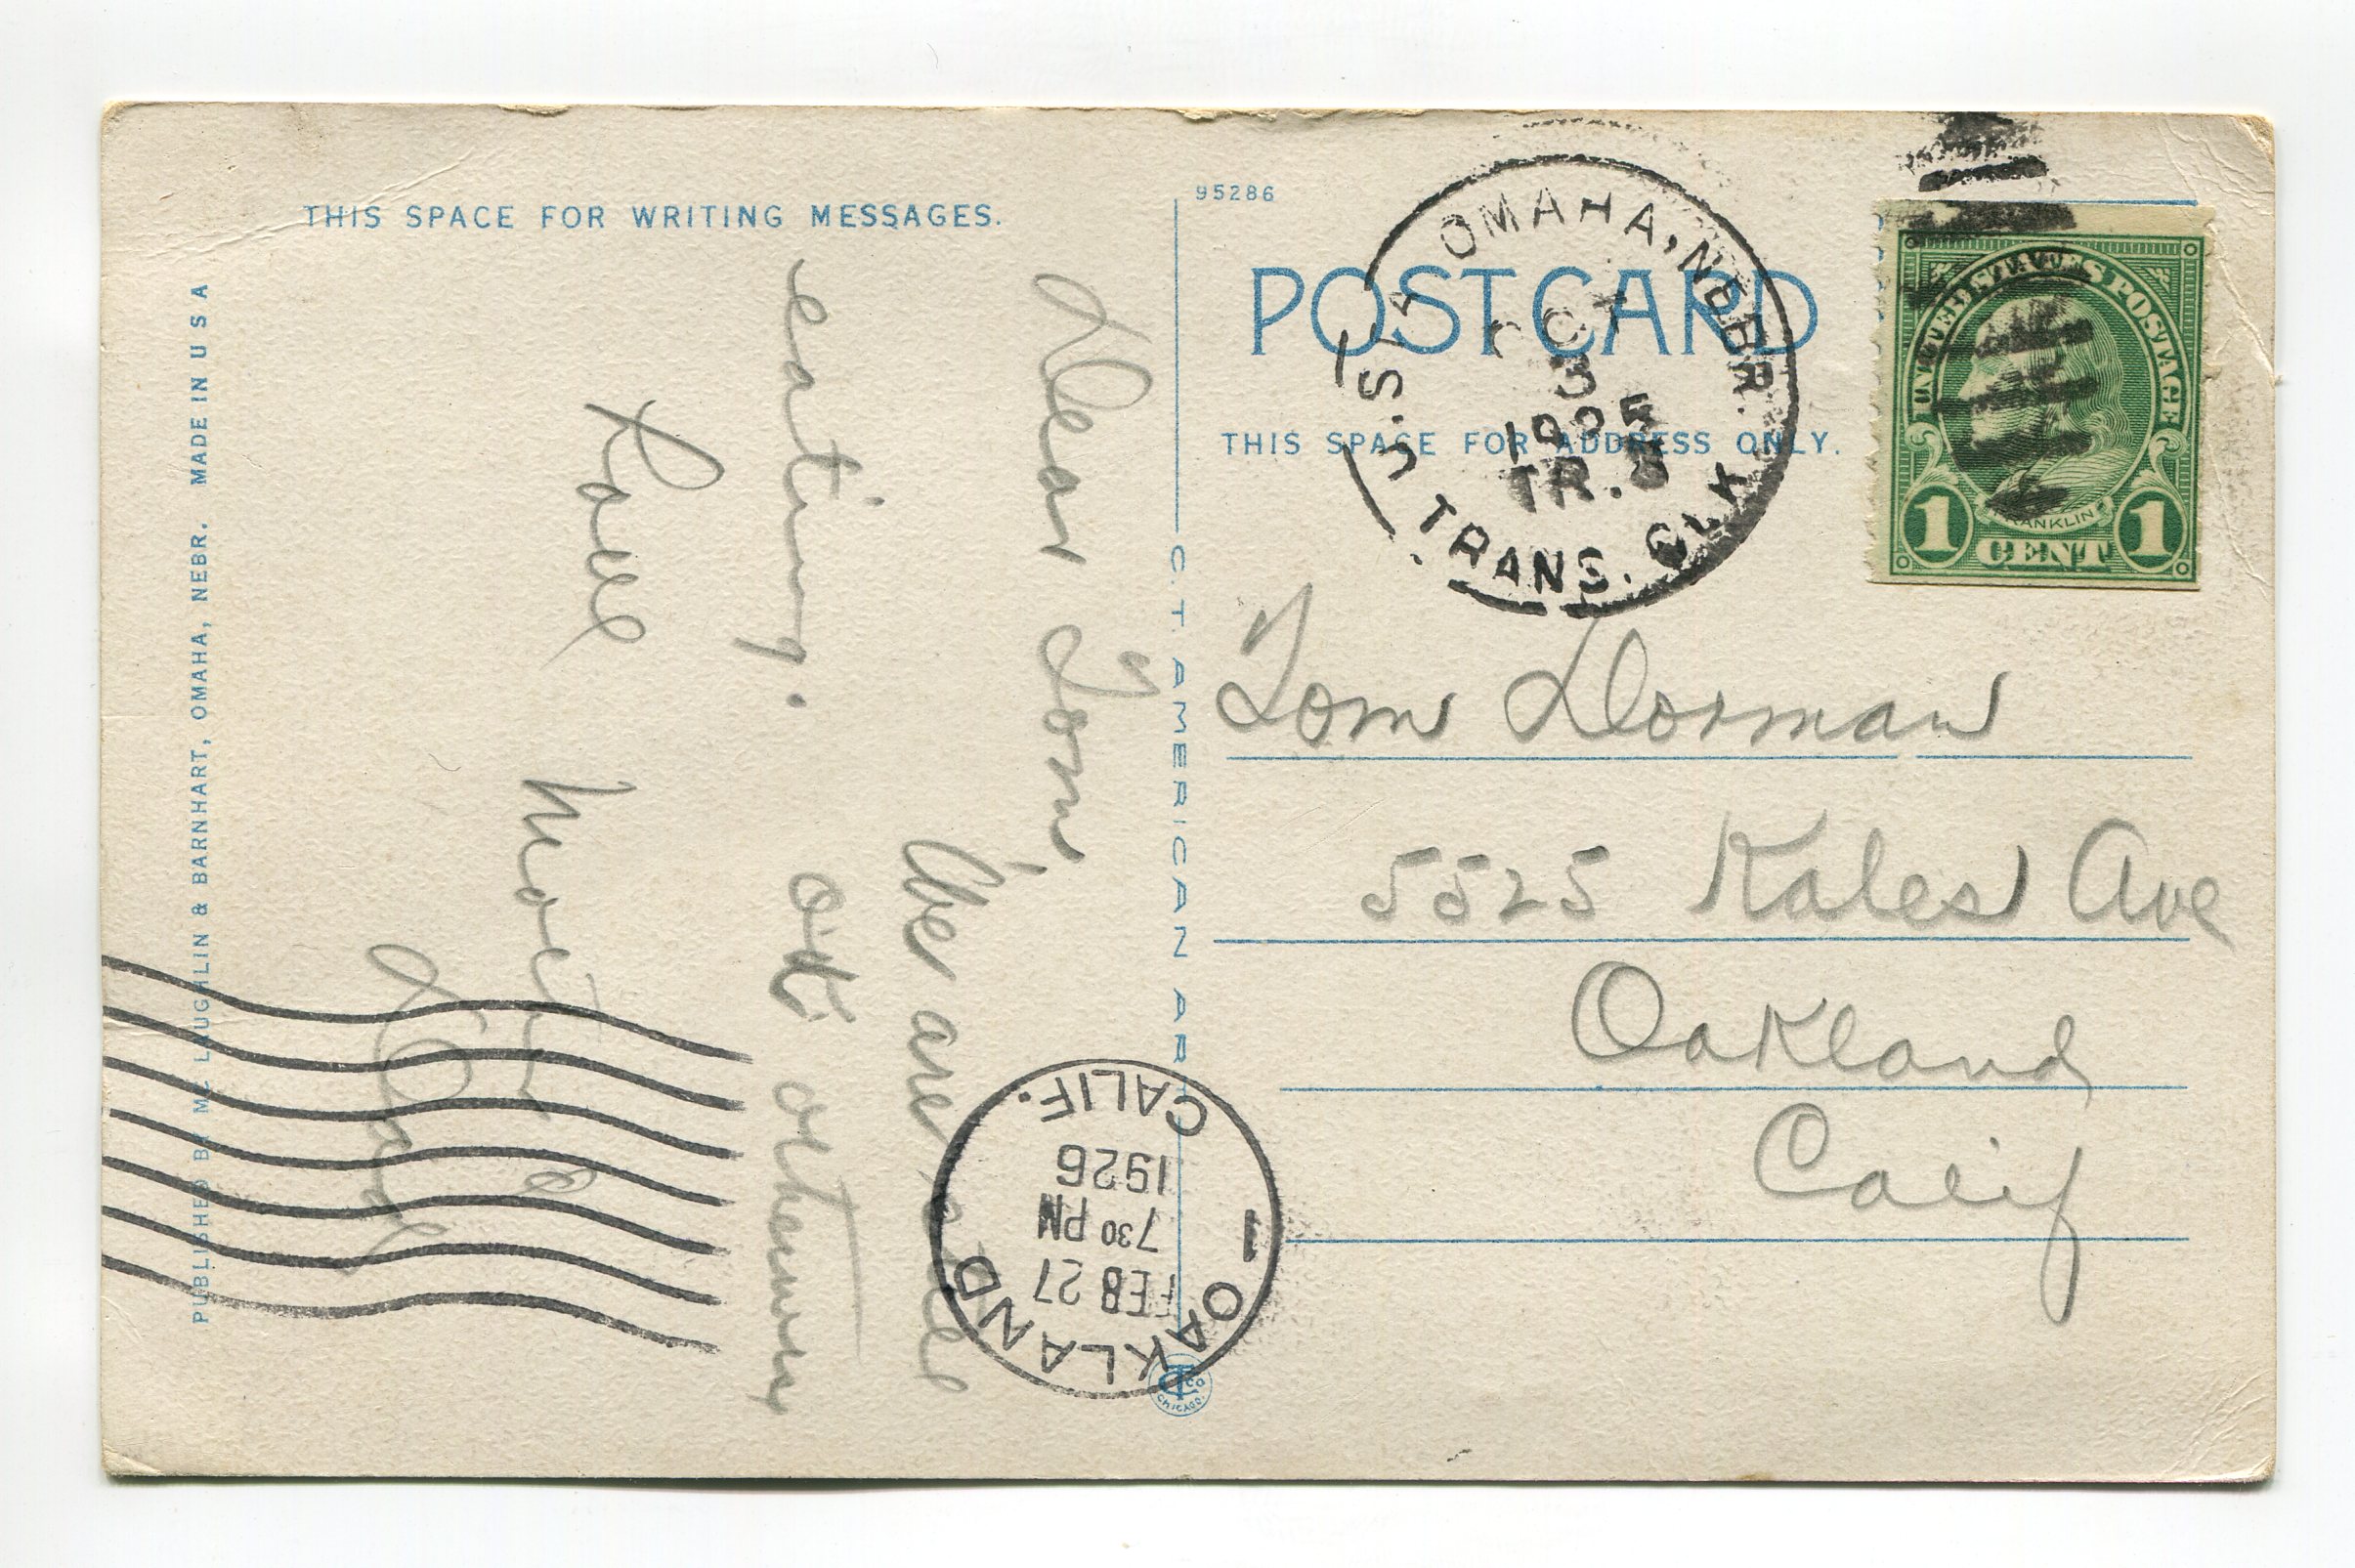 THIS SPACE FOR WRITING MESSAGES.
Dear Tom,
We are still
eating. OK otherwise
Love Mother &
Dad
PUBLISHED BY MC LAUGHLIN & BARNHART, OMAHA, NEBR. MADE IN U S A
C. T. AMERICAN AR
95286
POST CARD
THIS SPACE FOR ADDRESS ONLY.
OMAHA, NEBR.
OCT
3
1925
TR.
U.S.A TRANS. CLK
UNITED STATES POSTAGE
FRANKLIN
1 CENT 1
Tom Dorman
5525 Kales Ave
Oakland
Calif
OAKLAND
FEB 27
7 30 PM
1926
CALIF.
1
CHICAGO.